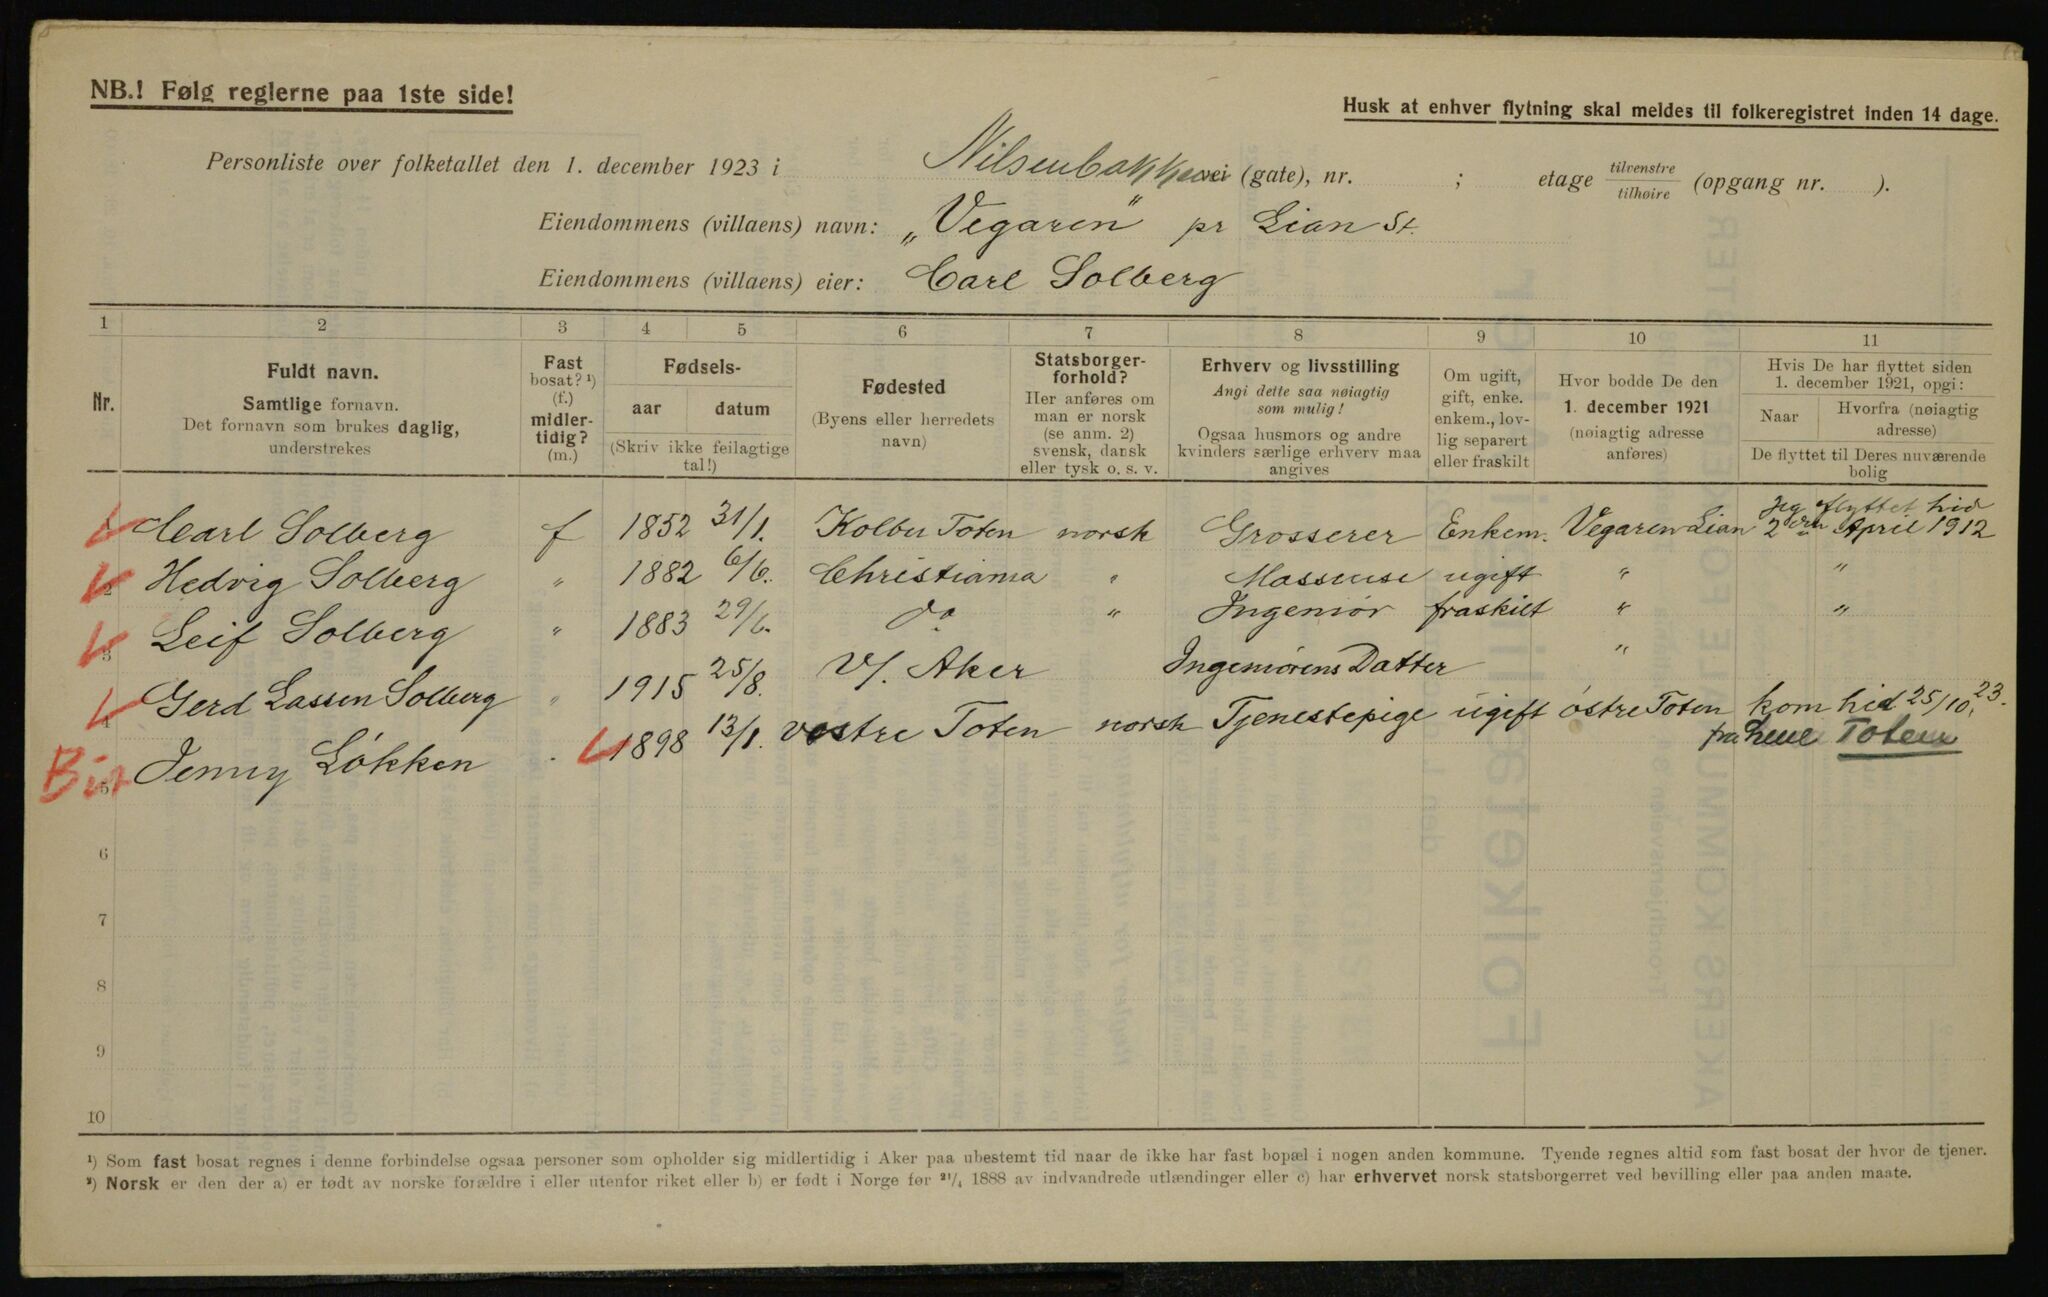 NB.! Følg reglerne paa 1ste side!
Husk at enhver flytning skal meldes til folkeregistret inden 14 dage.
Personliste over folketallet den 1. december 1923 i Nilsenbakken vei (gate), nr. ; etage tilvenstre / tilhøire (opgang nr. ).
Eiendommens (villaens) navn: „Vegaren" pr Lian St.
Eiendommens (villaens) eier: Carl Solberg
1 2 3 4 5 6 7 8 9 10 11
Nr.
Fuldt navn.
Samtlige fornavn.
Det fornavn som brukes daglig,
understrekes
Fast
bosat? ¹)
(f.)
midler-
tidig?
(m.)
Fødsels-
aar datum
(Skriv ikke feilagtige
tal!)
Fødested
(Byens eller herredets
navn)
Statsborger-
forhold?
Her anføres om
man er norsk
(se anm. 2)
svensk, dansk
eller tysk o. s. v.
Erhverv og livsstilling
Angi dette saa nøiagtig
som mulig!
Ogsaa husmors og andre
kvinders særlige erhverv maa
angives
Om ugift,
gift, enke.
enkem., lov-
lig separert
eller fraskilt
Hvor bodde De den
1. december 1921
(nøiagtig adresse
anføres)
Hvis De har flyttet siden
1. december 1921, opgi:
Naar Hvorfra (nøiagtig
adresse)
De flyttet til Deres nuværende
bolig
Jeg flyttet hid
Carl Solberg f 1852 31/1. Kolbu Toten norsk Grosserer Enkem. Vegaren Lian 2den April 1912
2 Hedvig Solberg " 1882 6/6. Christiania " Masseuse ugift " "
3 Leif Solberg " 1883 29/6. do Ingeniør fraskilt " "
4 Gerd Lassen Solberg " 1915 25/8. V/. Aker Ingeniørens Datter "
5 Jenny Løkken " 1898 13/1. vestre Toten norsk Tjenestepige ugift østre Toten kom hid 25/10. 23.
fra Toten
6
7
8
9
10
¹) Som fast bosat regnes i denne forbindelse ogsaa personer som opholder sig midlertidig i Aker paa ubestemt tid naar de ikke har fast bopæl i nogen anden kommune. Tyende regnes altid som fast bosat der hvor de tjener.
²) Norsk er den der a) er født av norske forældre i eller utenfor riket eller b) er født i Norge før 21/4 1888 av indvandrede utlændinger eller c) har erhvervet norsk statsborgerret ved bevilling eller paa anden maate.